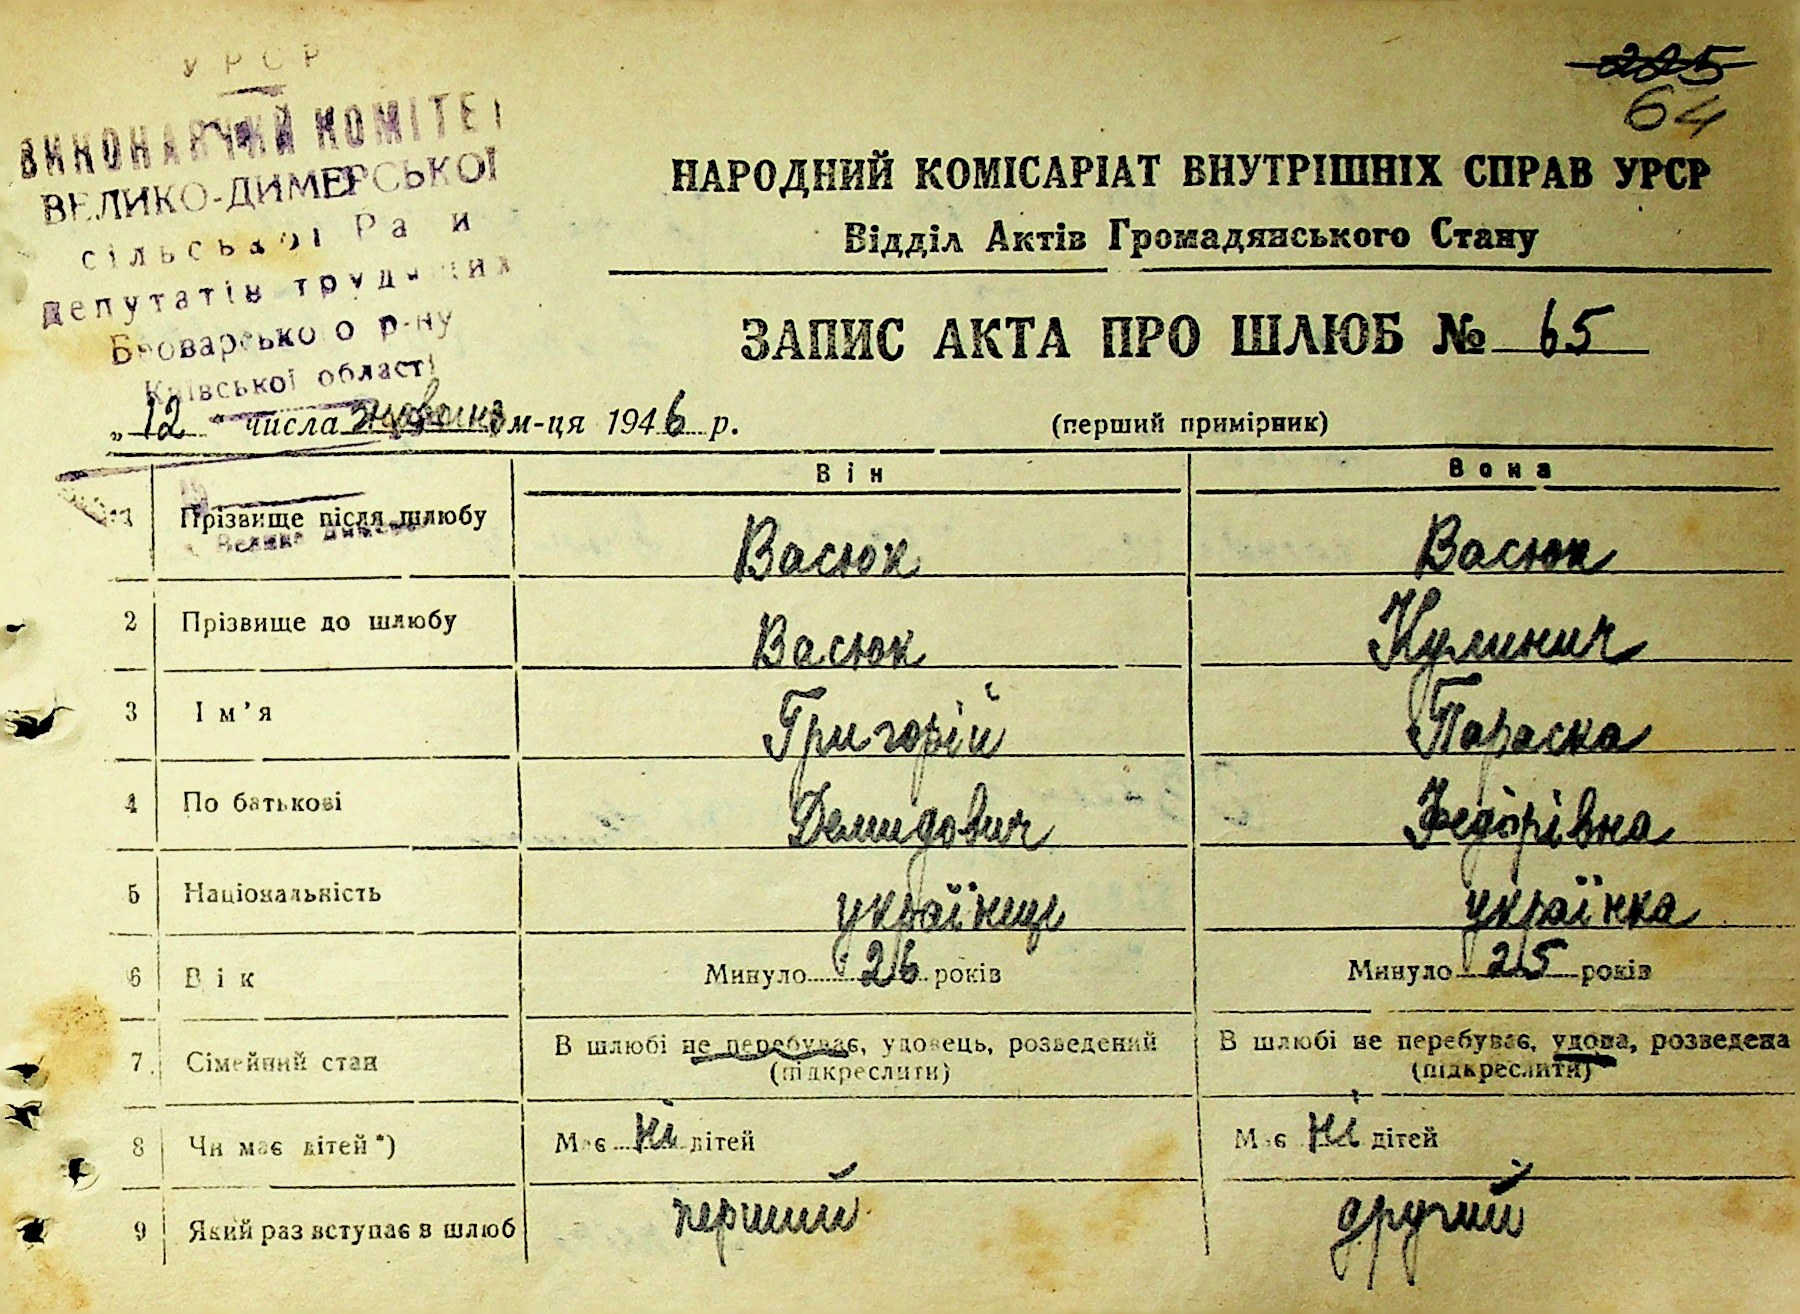 УРСР
ВИКОНАВЧИЙ КОМІТЕТ
ВЕЛИКО-ДИМЕРСЬКОЇ
сільської Ради
депутатів трудящих
Броварського р-ну
Київської області
225
64
НАРОДНИЙ КОМІСАРІАТ ВНУТРІШНІХ СПРАВ УРСР
Відділ Актів Громадянського Стану
ЗАПИС АКТА ПРО ШЛЮБ № 65
„12" числа м-ця 1946 р. (перший примірник)
Він Вона
1 Прізвище після шлюбу Васюк Васюк
Велика Димерка
2 Прізвище до шлюбу Васюк Кулинич
3 Ім’я Григорій Параска
4 По батькові Демидович Федорівна
5 Національність українець українка
6 Вік Минуло 26 років Минуло 25 років
7. Сімейний стан В шлюбі не перебуває, удовець, розведений В шлюбі не перебуває, удова, розведена
(підкреслити) (підкреслити)
8 Чи має дітей*) Має ні дітей Має ні дітей
9 Який раз вступає в шлюб перший другий